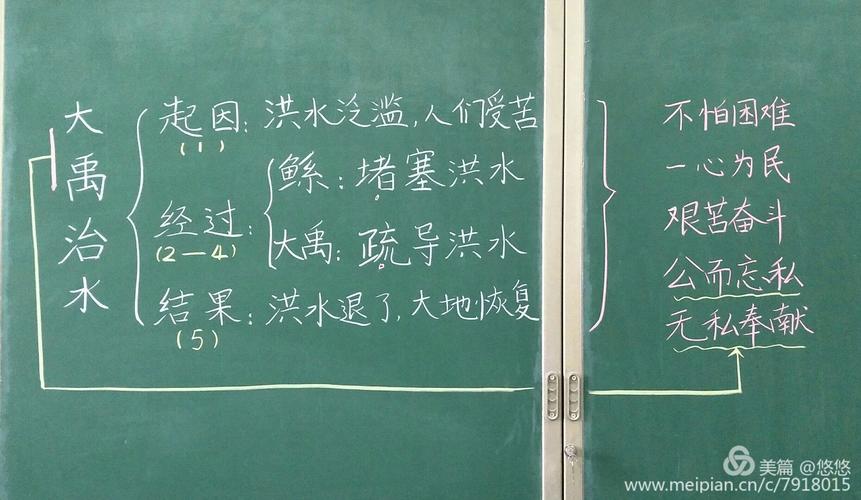 大禹治水
起因：洪水泛滥，人们受苦
（1）
经过：
（2—4）
鲧：堵塞洪水
大禹：疏导洪水
结果：洪水退了，大地恢复
（5）
不怕困难
一心为民
艰苦奋斗
公而忘私
无私奉献
美篇 @悠悠
www.meipian.cn/c/7918015